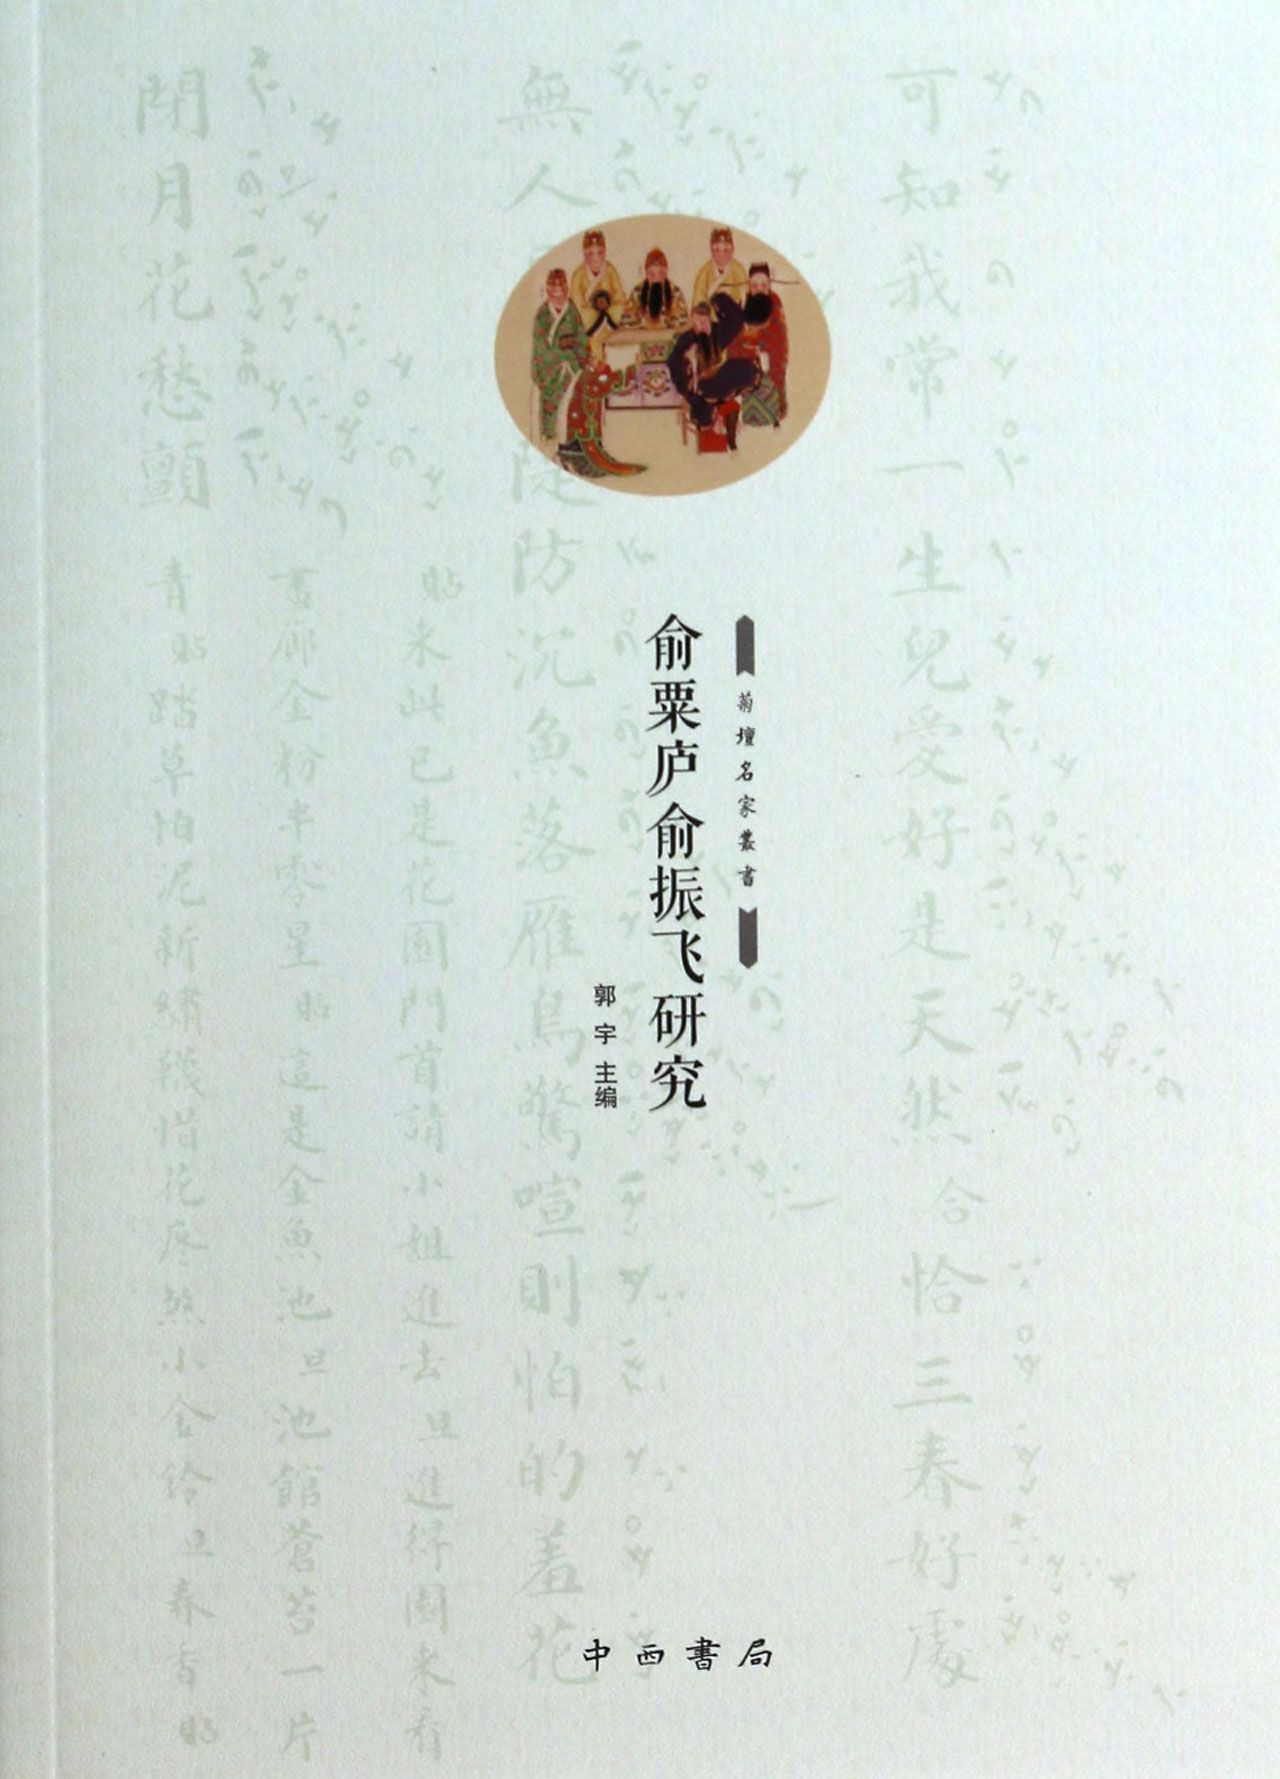 菊壇名家叢書
俞粟庐俞振飞研究
郭宇 主编
中西書局
可知我常一生兒愛好是天然 合 恰三春好處
無人
隄防沉魚落雁鳥驚喧則怕的羞花
貼 來此已是花園門首請小姐進去 旦 進得園來看
畫廊金粉半零星 貼 這是金魚池 旦 池館蒼苔一片
青 貼 踏草怕泥新繡襪惜花疼煞小金鈴 旦 春香 貼
閉月花愁顫